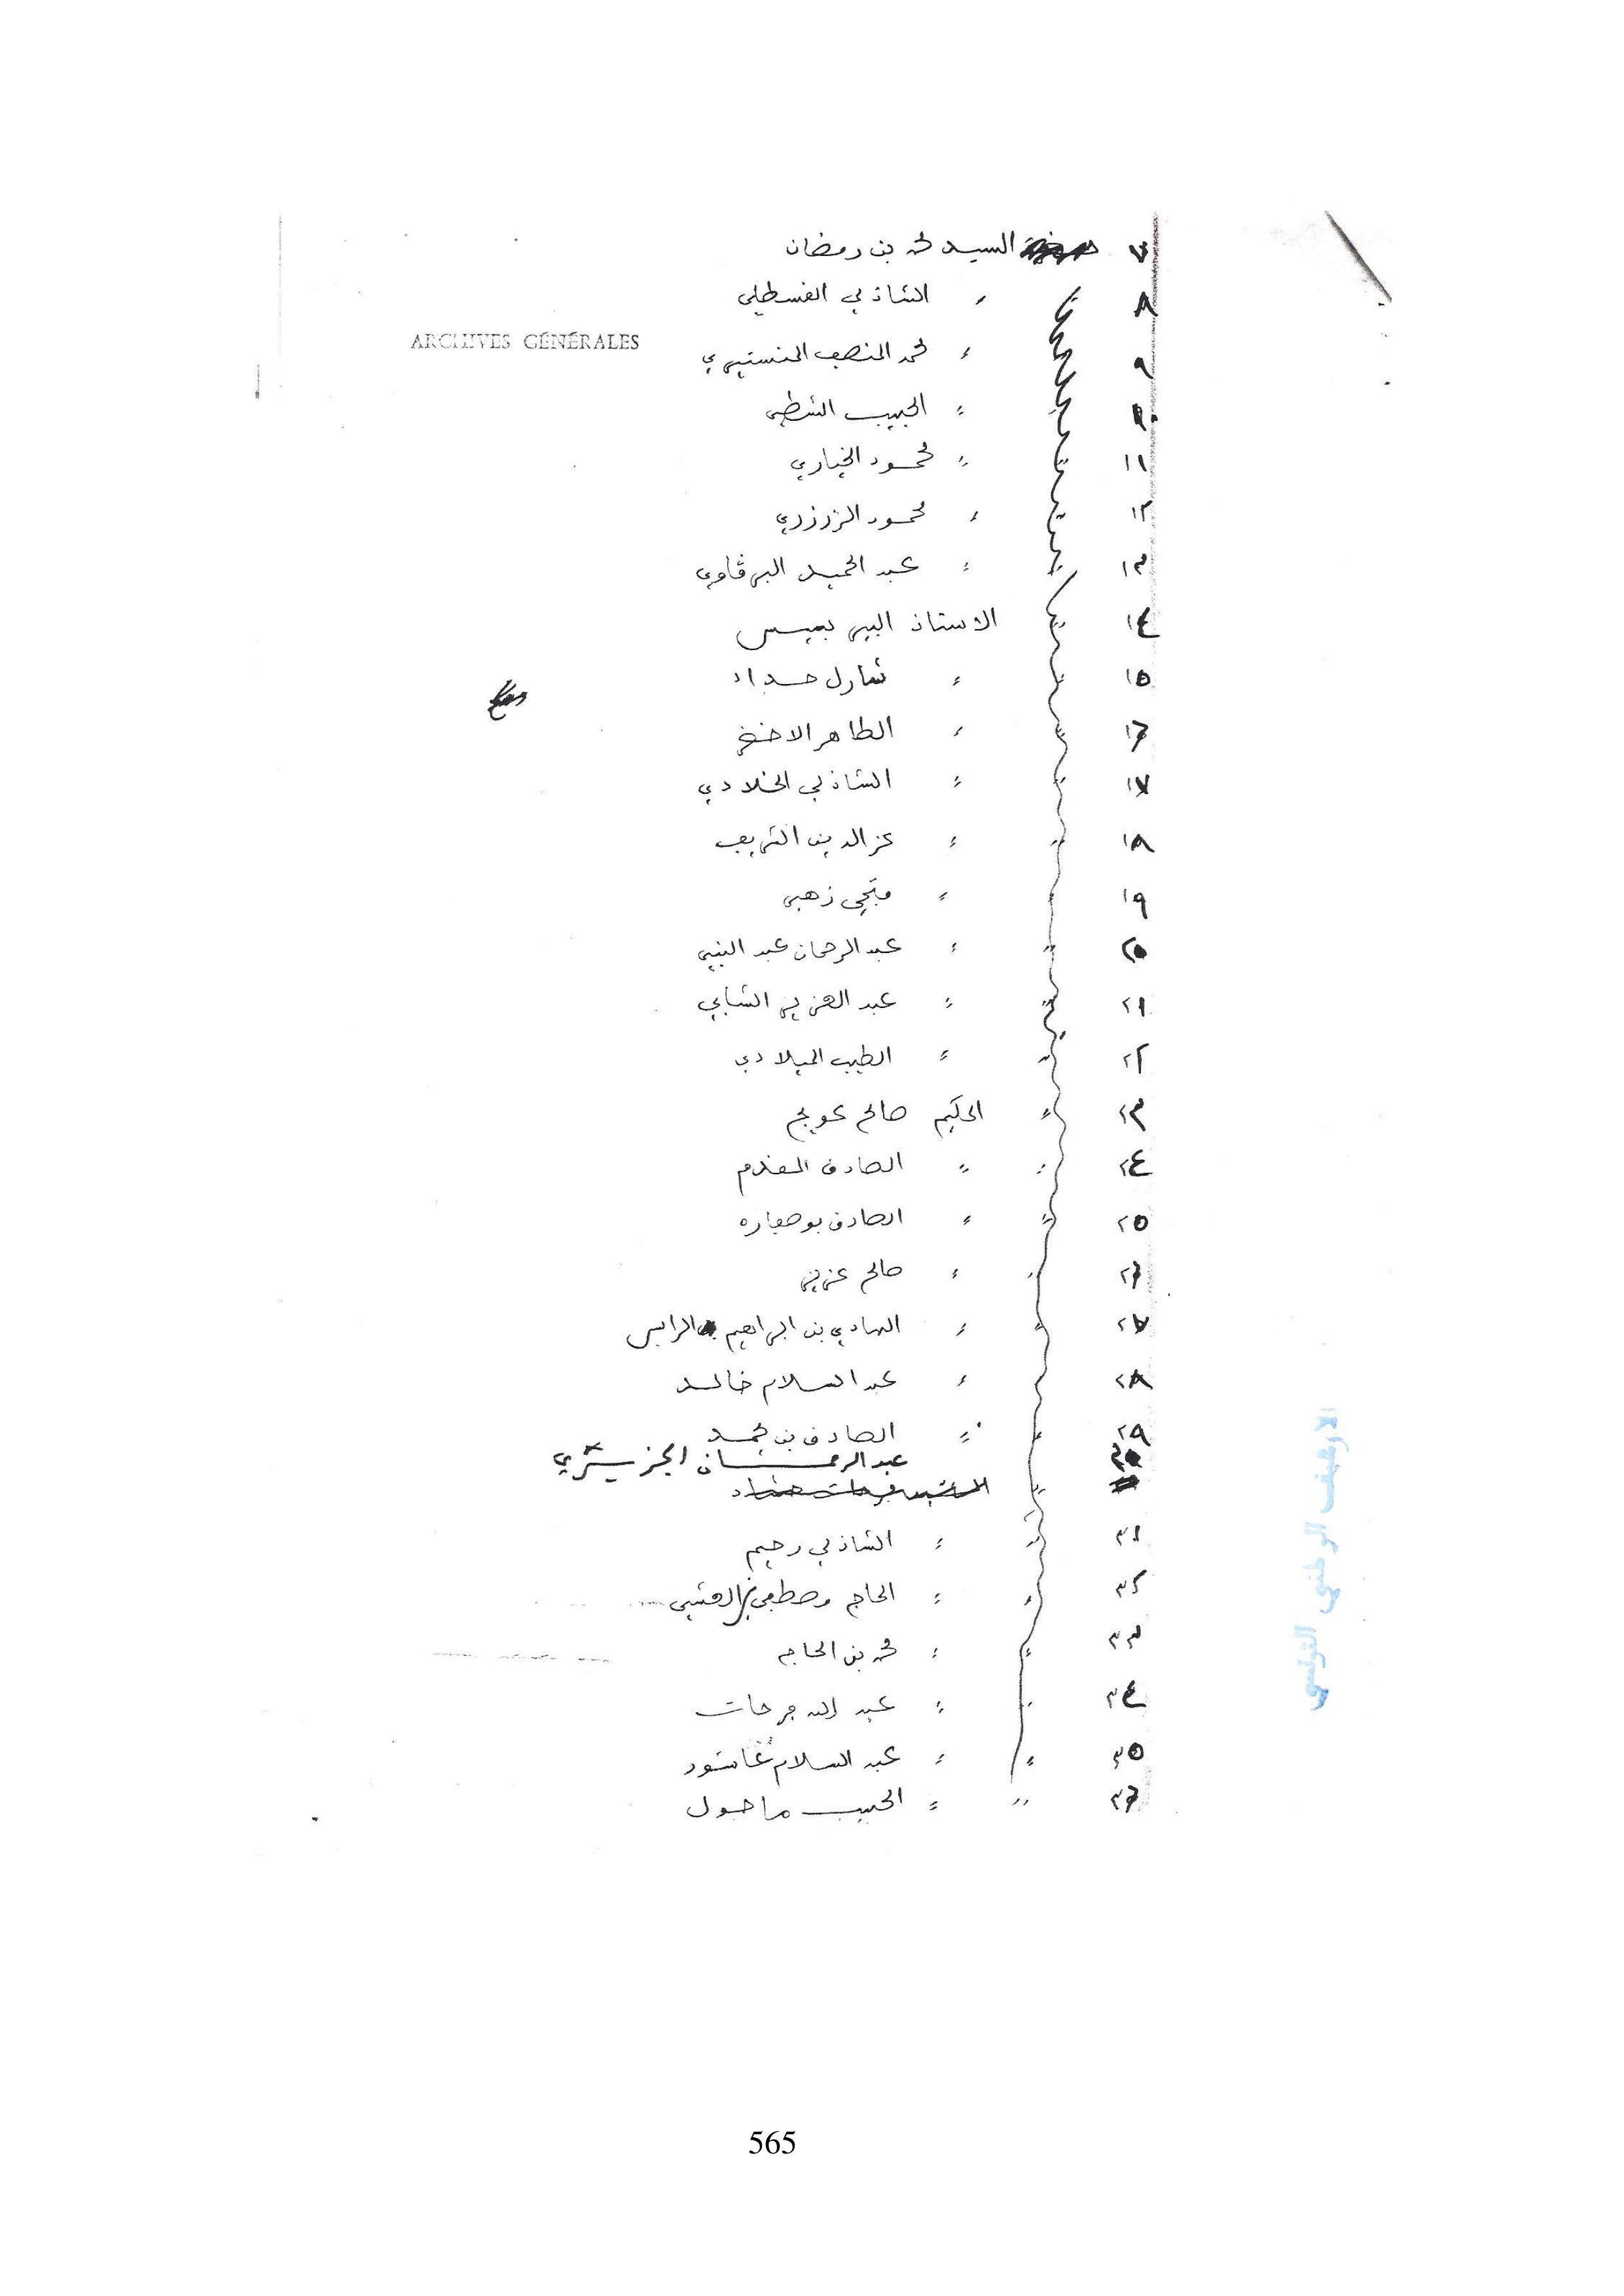 ٧ السيد محمد بن رمضان
٨ " الشاذلي القسطلي
ARCHIVES GÉNÉRALES
٩ " محمد المنصف المنستيري
١٠ " الحبيب الشطي
١١ " محمود الخياري
١٢ " محمود الزرزري
١٣ " عبد الحميد البرڤاوي
١٤ الاستاذ البير بسيس
١٥ " شارل حداد
١٦ " الطاهر الاخضر
١٧ " الشاذلي الخلادي
١٨ " عز الدين الشريف
١٩ " فتحي زهير
٢٠ " عبد الرحمان عبد النبي
٢١ " عبد العزيز الشابي
٢٢ " الطيب الميلادي
٢٣ الحكيم صالح عويج
٢٤ " الصادق المقدم
٢٥ " الصادق بوصفاره
٢٦ " صالح عزيز
٢٧ " الهادي بن ابراهيم الرايس
٢٨ " عبد السلام خالد
٢٩ " الصادق بن محمد
٣٠ عبد الرحمان الجزيري
٣١ " الشاذلي رحيم
٣٢ " الحاج مصطفى
٣٣ " محمد بن الحاج
٣٤ " عبد الله فرحات
٣٥ " عبد السلام عاشور
٣٦ " الحبيب عاشور
الارشيف الوطني التونسي
565